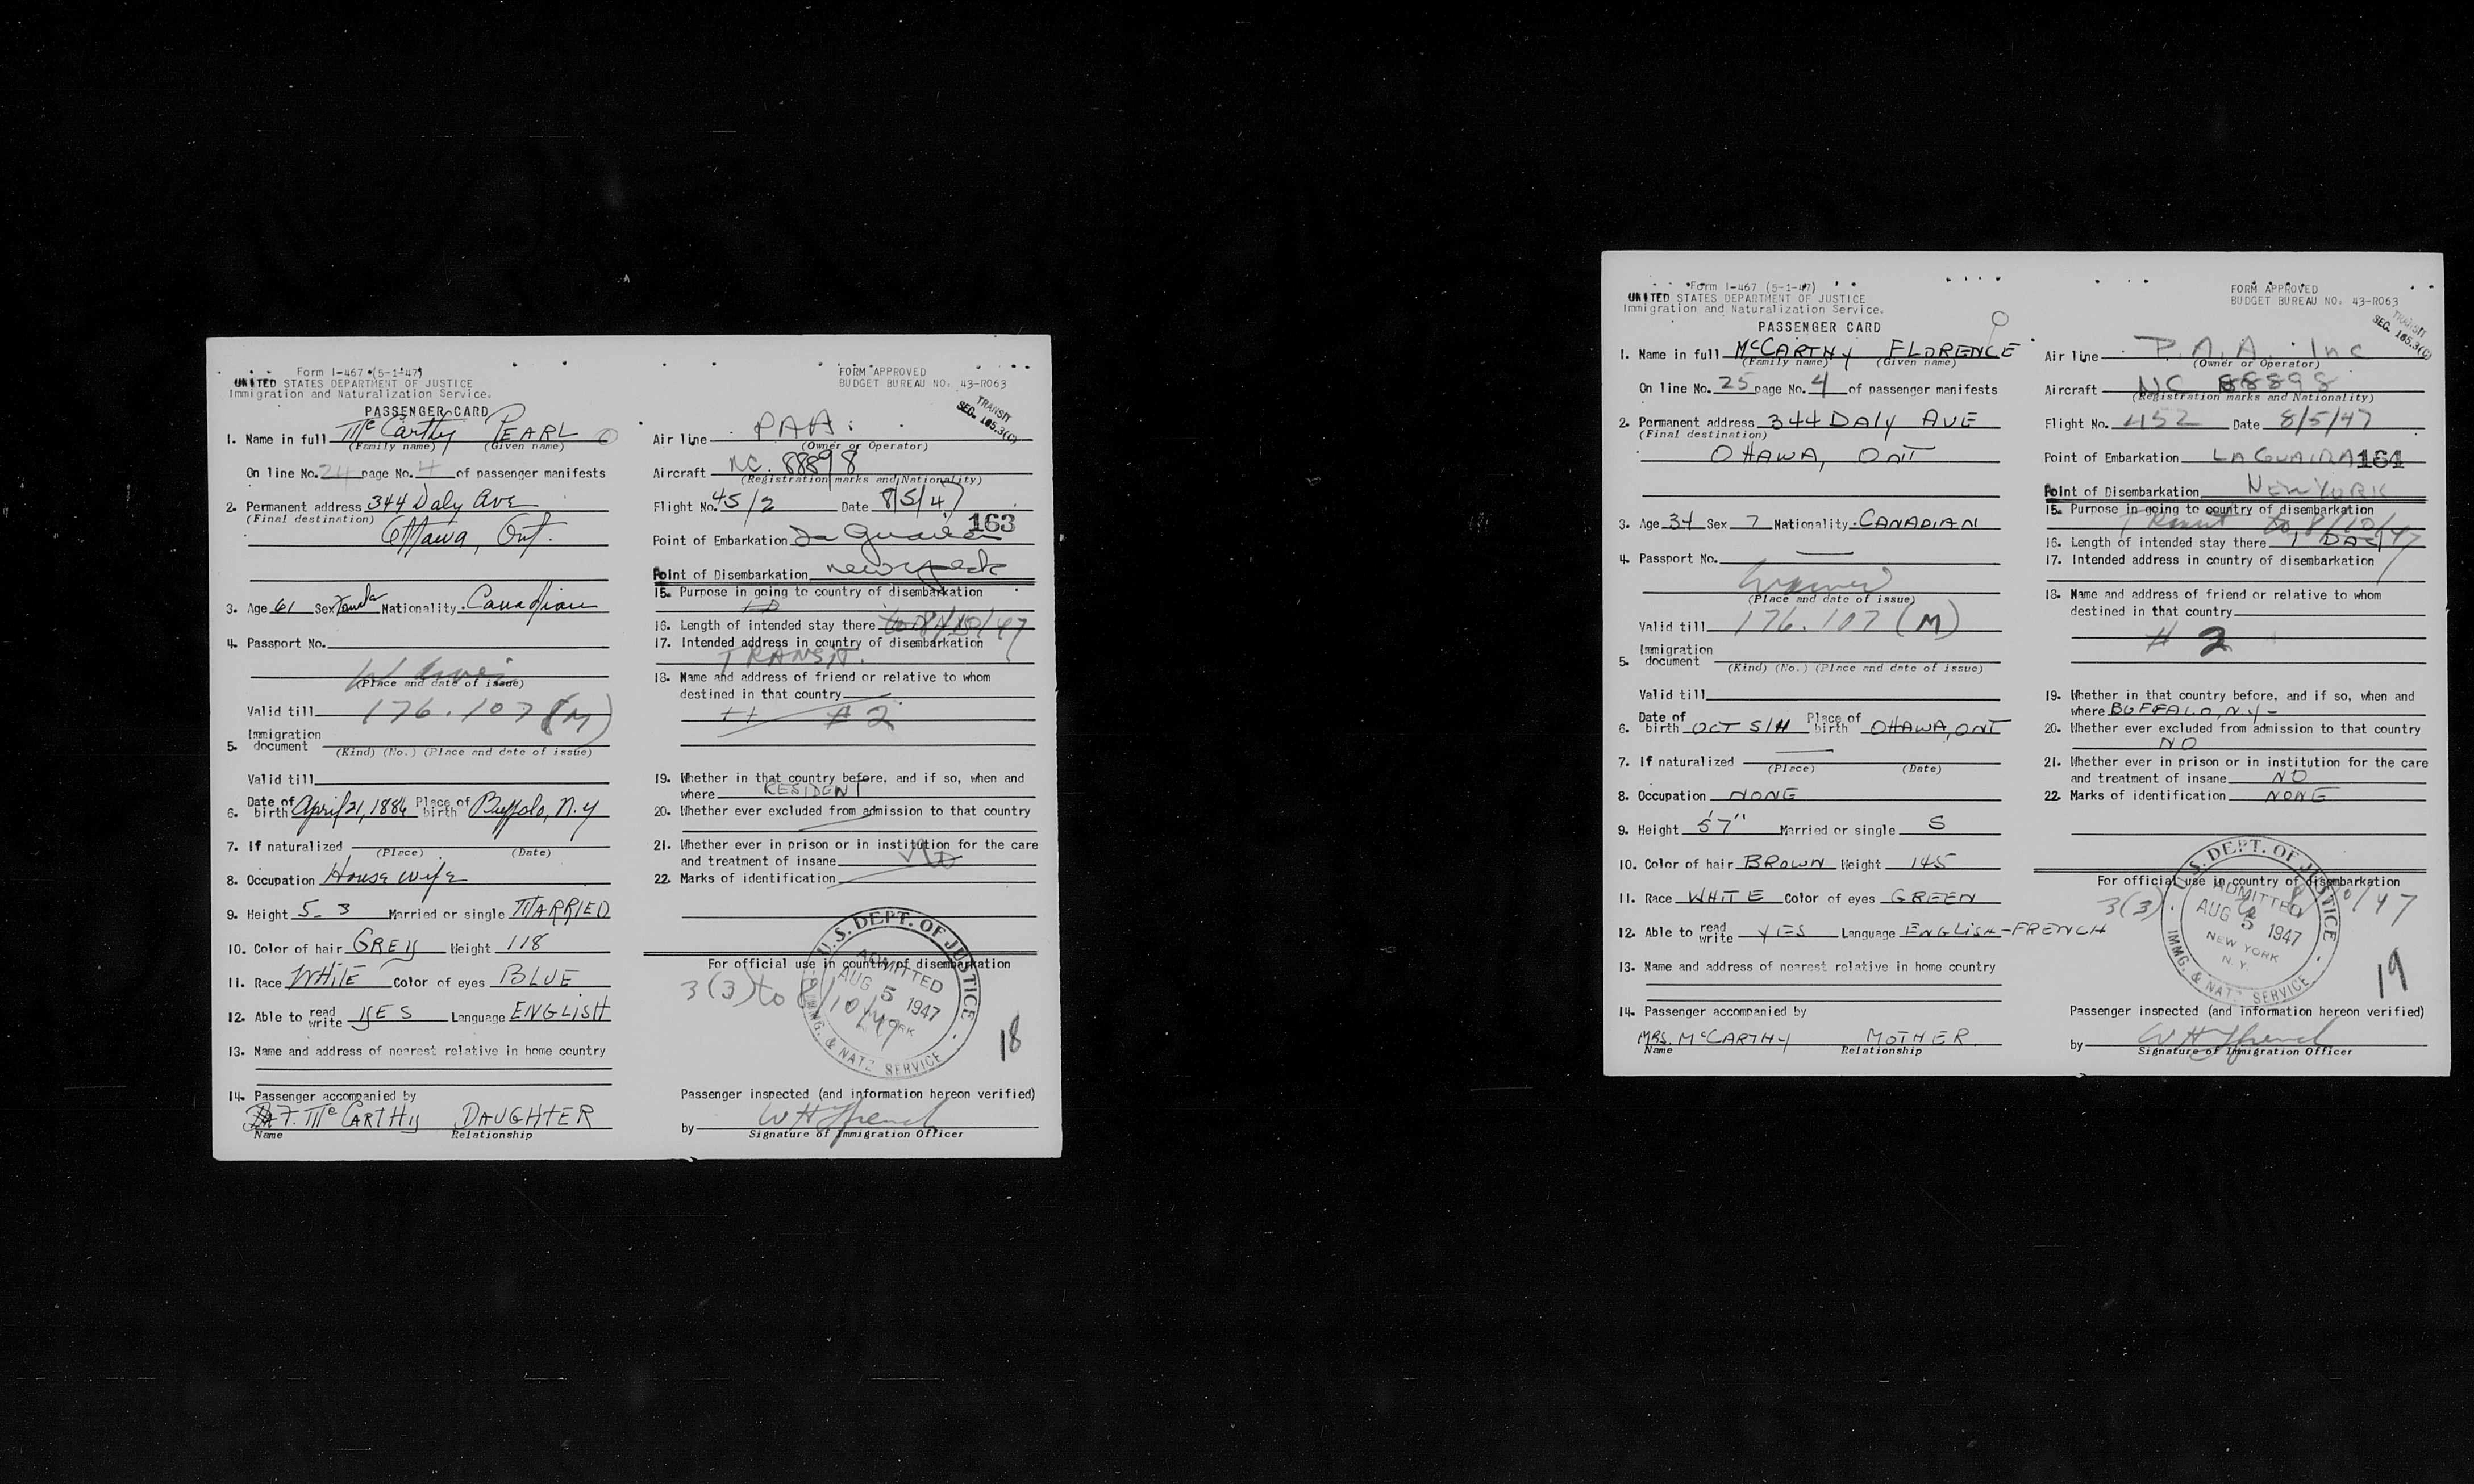 Form I-467 (5-1-47)
UNITED STATES DEPARTMENT OF JUSTICE
Immigration and Naturalization Service.
PASSENGER CARD
1. Name in full McCarthy PEARL
(Family name) (Given name)
On line No. 24 page No. 4 of passenger manifests
2. Permanent address 344 Daly Ave
(Final destination)
Ottawa, Ont.
3. Age 61 Sex Female Nationality Canadian
4. Passport No.
(Place and date of issue)
Valid till 176.107 (M)
5. Immigration document
(Kind) (No.) (Place and date of issue)
Valid till
6. Date of birth April 21, 1886 Place of birth Buffalo, N.Y
7. If naturalized
(Place) (Date)
8. Occupation House wife
9. Height 5-3 Married or single MARRIED
10. Color of hair GREY Weight 118
11. Race WHITE Color of eyes BLUE
12. Able to read write YES Language ENGLISH
13. Name and address of nearest relative in home country
14. Passenger accompanied by
F. McCARTHY DAUGHTER
Name Relationship
FORM APPROVED
BUDGET BUREAU NO. 43-R063
TRANSIT
SEC. 165.3(C)
Air line PAA
(Owner or Operator)
Aircraft NC. 88898
(Registration marks and Nationality)
Flight No. 45/2 Date 8/5/47
163
Point of Embarkation La Guaira
Point of Disembarkation new york
15. Purpose in going to country of disembarkation
16. Length of intended stay there to 8/10/47
17. Intended address in country of disembarkation
TRANSIT.
18. Name and address of friend or relative to whom
destined in that country
# 2
19. Whether in that country before, and if so, when and
where RESIDENT
20. Whether ever excluded from admission to that country
21. Whether ever in prison or in institution for the care
and treatment of insane NO
22. Marks of identification
For official use in country of disembarkation
3(3) to 8/10/47
U.S. DEPT. OF JUSTICE
ADMITTED
AUG 5 1947
NEW YORK
IMMG. & NATZ SERVICE
18
Passenger inspected (and information hereon verified)
by W H French
Signature of Immigration Officer
Form I-467 (5-1-47)
UNITED STATES DEPARTMENT OF JUSTICE
Immigration and Naturalization Service.
PASSENGER CARD
1. Name in full McCARTHY FLORENCE
(Family name) (Given name)
On line No. 25 page No. 4 of passenger manifests
2. Permanent address 344 DALY AVE
(Final destination)
OTTAWA, ONT
3. Age 34 Sex F Nationality CANADIAN
4. Passport No.
(Place and date of issue)
Valid till 176.107 (M)
5. Immigration document
(Kind) (No.) (Place and date of issue)
Valid till
6. Date of birth OCT 5/ Place of birth OTTAWA, ONT
7. If naturalized
(Place) (Date)
8. Occupation NONE
9. Height 5'7" Married or single S
10. Color of hair BROWN Weight 145
11. Race WHITE Color of eyes GREEN
12. Able to read write YES Language ENGLISH-FRENCH
13. Name and address of nearest relative in home country
14. Passenger accompanied by
MRS. McCARTHY MOTHER
Name Relationship
FORM APPROVED
BUDGET BUREAU NO. 43-R063
TRANSIT
SEC. 165.3(C)
Air line P.A.A. Inc
(Owner or Operator)
Aircraft NC 88898
(Registration marks and Nationality)
Flight No. 452 Date 8/5/47
Point of Embarkation LA GUAIRA 164
Point of Disembarkation NEW YORK
15. Purpose in going to country of disembarkation
Transit to 8/10/47
16. Length of intended stay there 1 DAY
17. Intended address in country of disembarkation
18. Name and address of friend or relative to whom
destined in that country
# 2
19. Whether in that country before, and if so, when and
where BUFFALO, N.Y-
20. Whether ever excluded from admission to that country
NO
21. Whether ever in prison or in institution for the care
and treatment of insane NO
22. Marks of identification NONE
For official use in country of disembarkation
3(3) to 8/10/47
U.S. DEPT. OF JUSTICE
ADMITTED
AUG 5 1947
NEW YORK
N.Y.
IMMG. & NATZ SERVICE
19
Passenger inspected (and information hereon verified)
by W H French
Signature of Immigration Officer